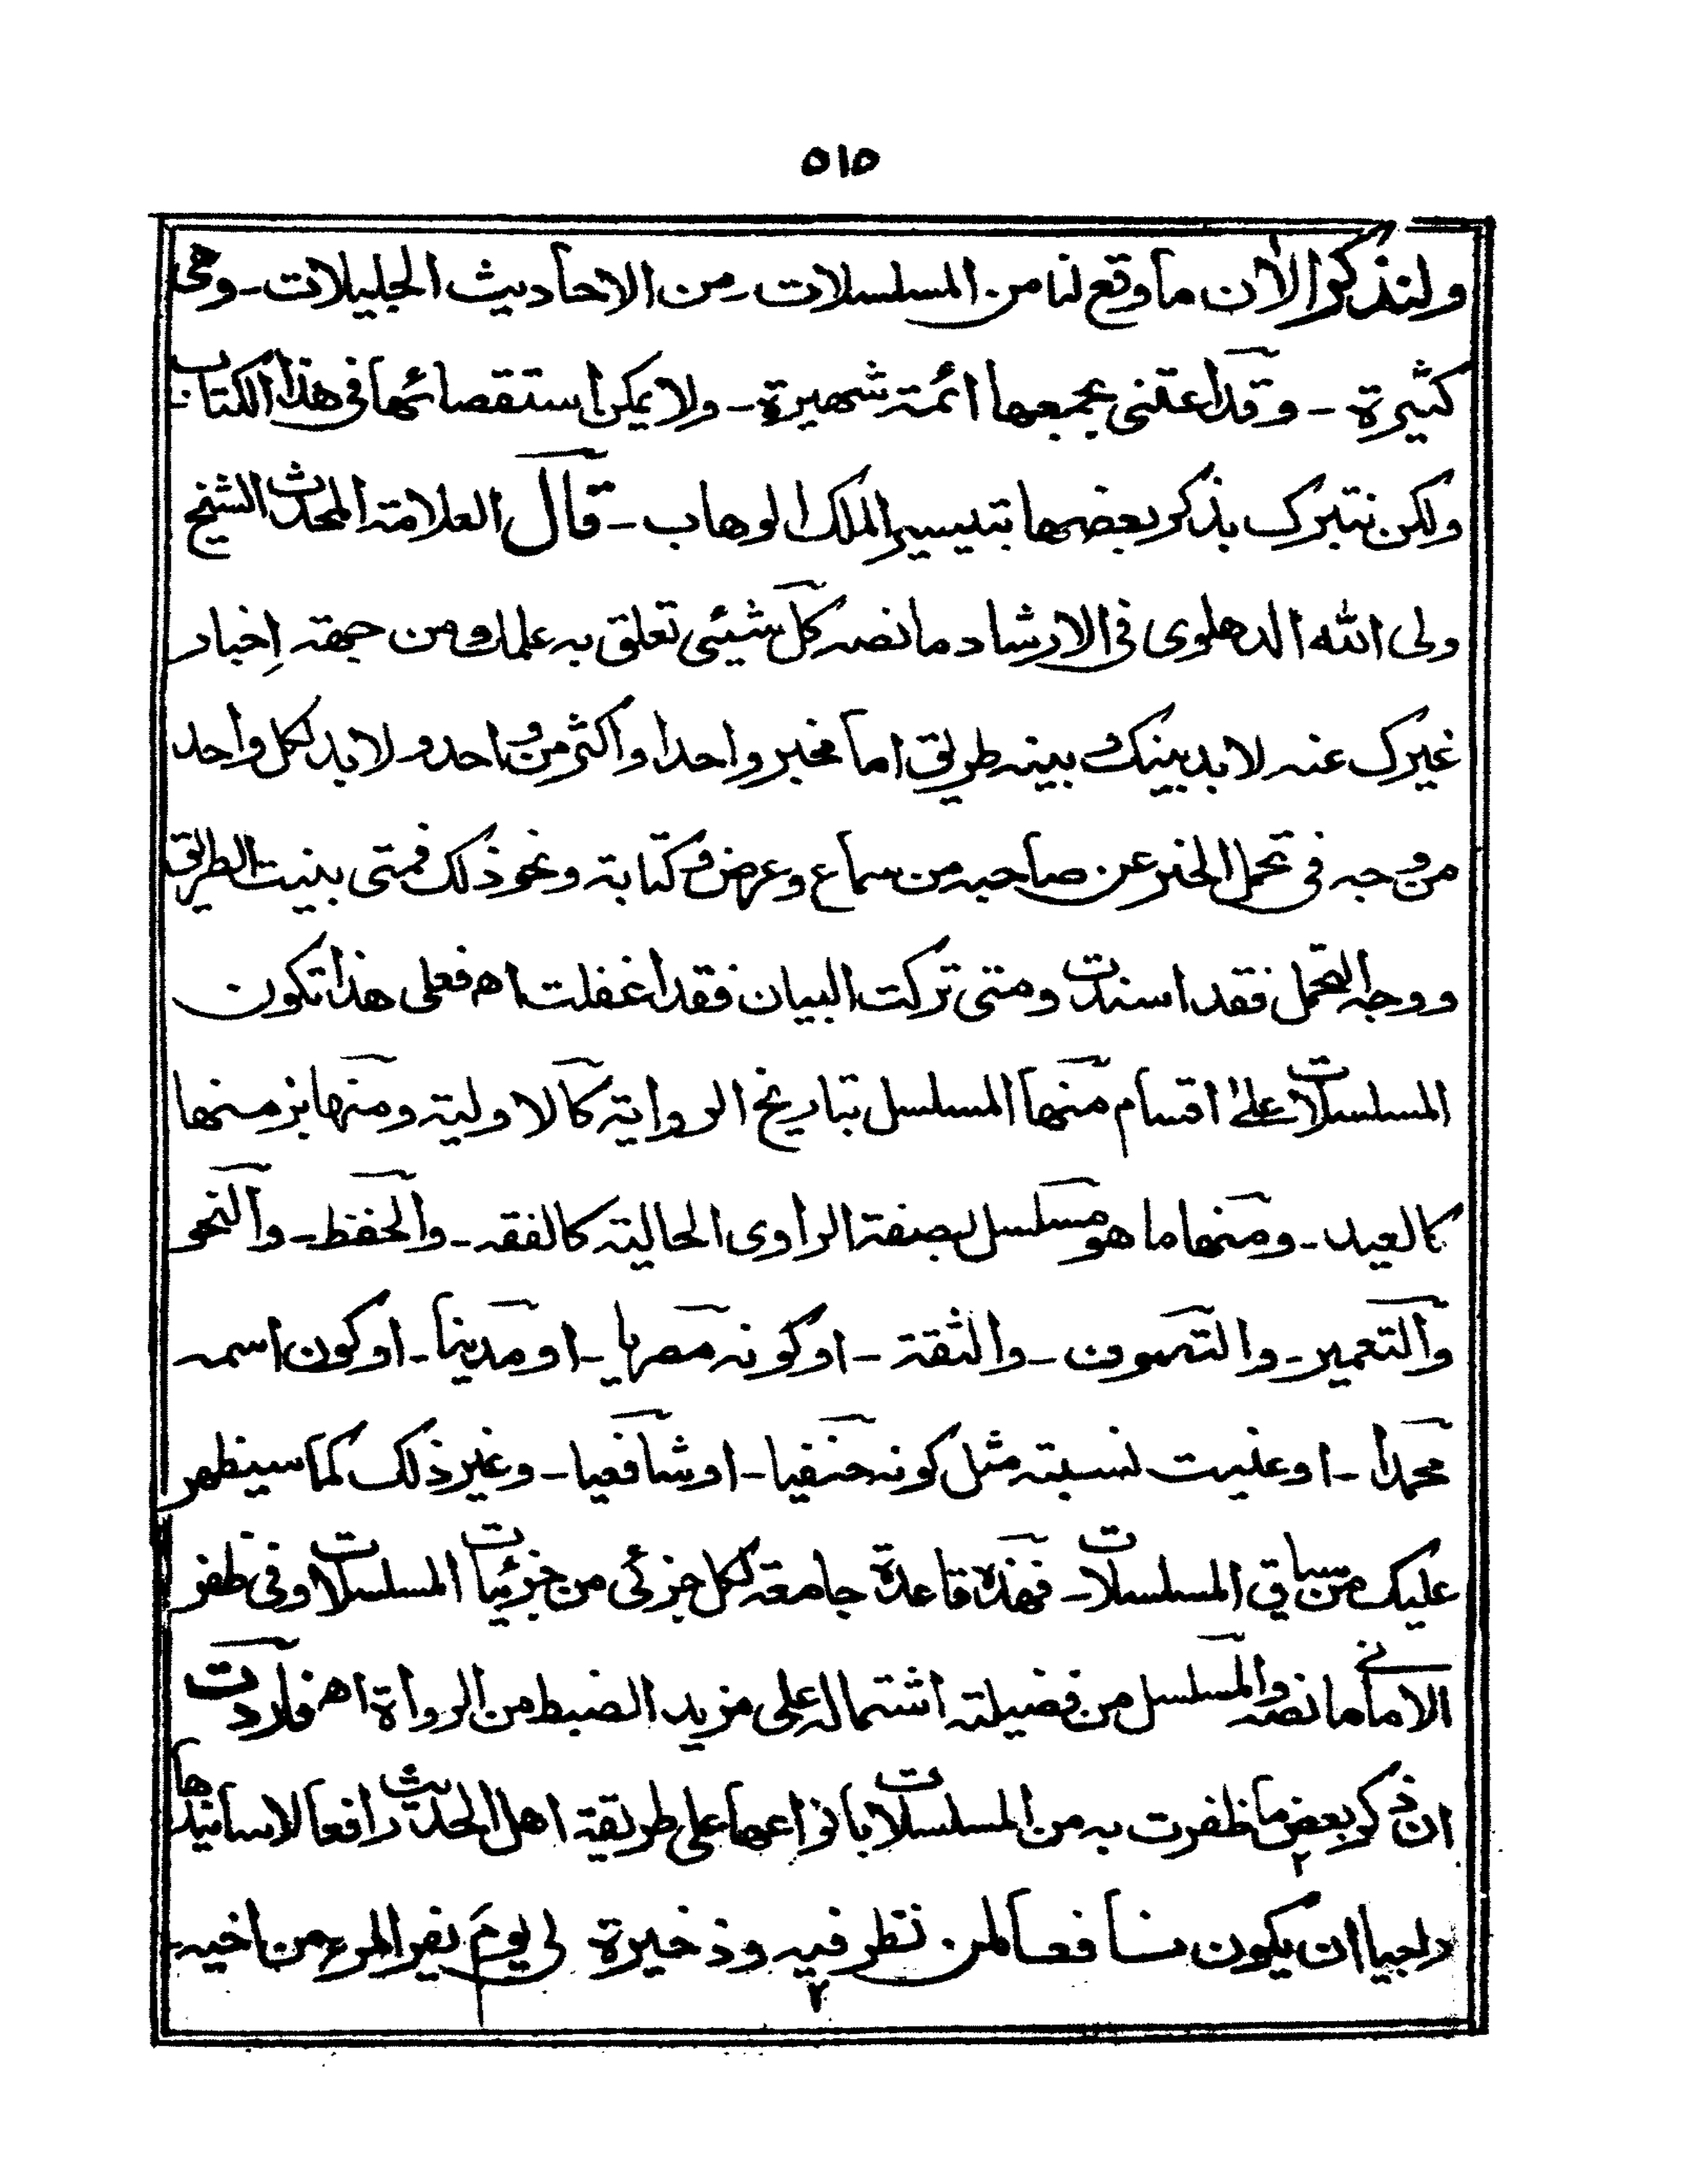 ٥١٥
ولنذكر الأن ما وقع لنا من المسلسلات ـ من الاحاديث الجليلات ـ وهى
كثيرة ـ وقد اعتنى بجمعها ائمة شهيرة ـ ولا يمكن استقصائها فى هذا الكتاب
ولكن نتبرك بذكر بعضها بتيسير الملك الوهاب ـ قال العلامة المحدث الشيخ
ولى الله الدهلوى فى الارشاد ما نصه كل شيئى تعلق به علمك ومن جهة إخبار
غيرك عنه لا بد بينك وبينه طريق اما مخبر واحد او اكثر من واحد ولا بد لكل واحد
من وجه فى تحمل الخبر عن صاحبه من سماع وعرض وكتابة ونحو ذلك فمتى بينت الطريق
ووجه التحمل فقد اسندت ومتى تركت البيان فقد اغفلت اه فعلى هذا تكون
المسلسلات على اقسام منها المسلسل بتاريخ الرواية كالاولية ومنها بزمنها
كالعيد ـ ومنها ما هو مسلسل بصفة الراوى الحالية كالفقه ـ والحفظ ـ والنحو
والتعمير ـ والتصوف ـ والثقة ـ او كونه مصريا ـ او مدنيا ـ او كون اسمه
محمدا ـ او عينت نسبته مثل كونه حنفيا ـ او شافعيا ـ وغير ذلك كما سيظهر
عليك من سياق المسلسلات ـ فهذه قاعدة جامعة لكل جزئى من جزئيات المسلسلات وفى ظفر
الامانى ما نصه والمسلسل من فضيلته اشتماله على مزيد الضبط من الرواة اه فاردت
ان ذكر بعض ما ظفرت به من المسلسلات بانواعها على طريقة اهل الحديث رافعا لاسانيدها
راجيا ان يكون نافعا لمن نظر فيه وذخيرة لى يوم يفر المرء من اخيه